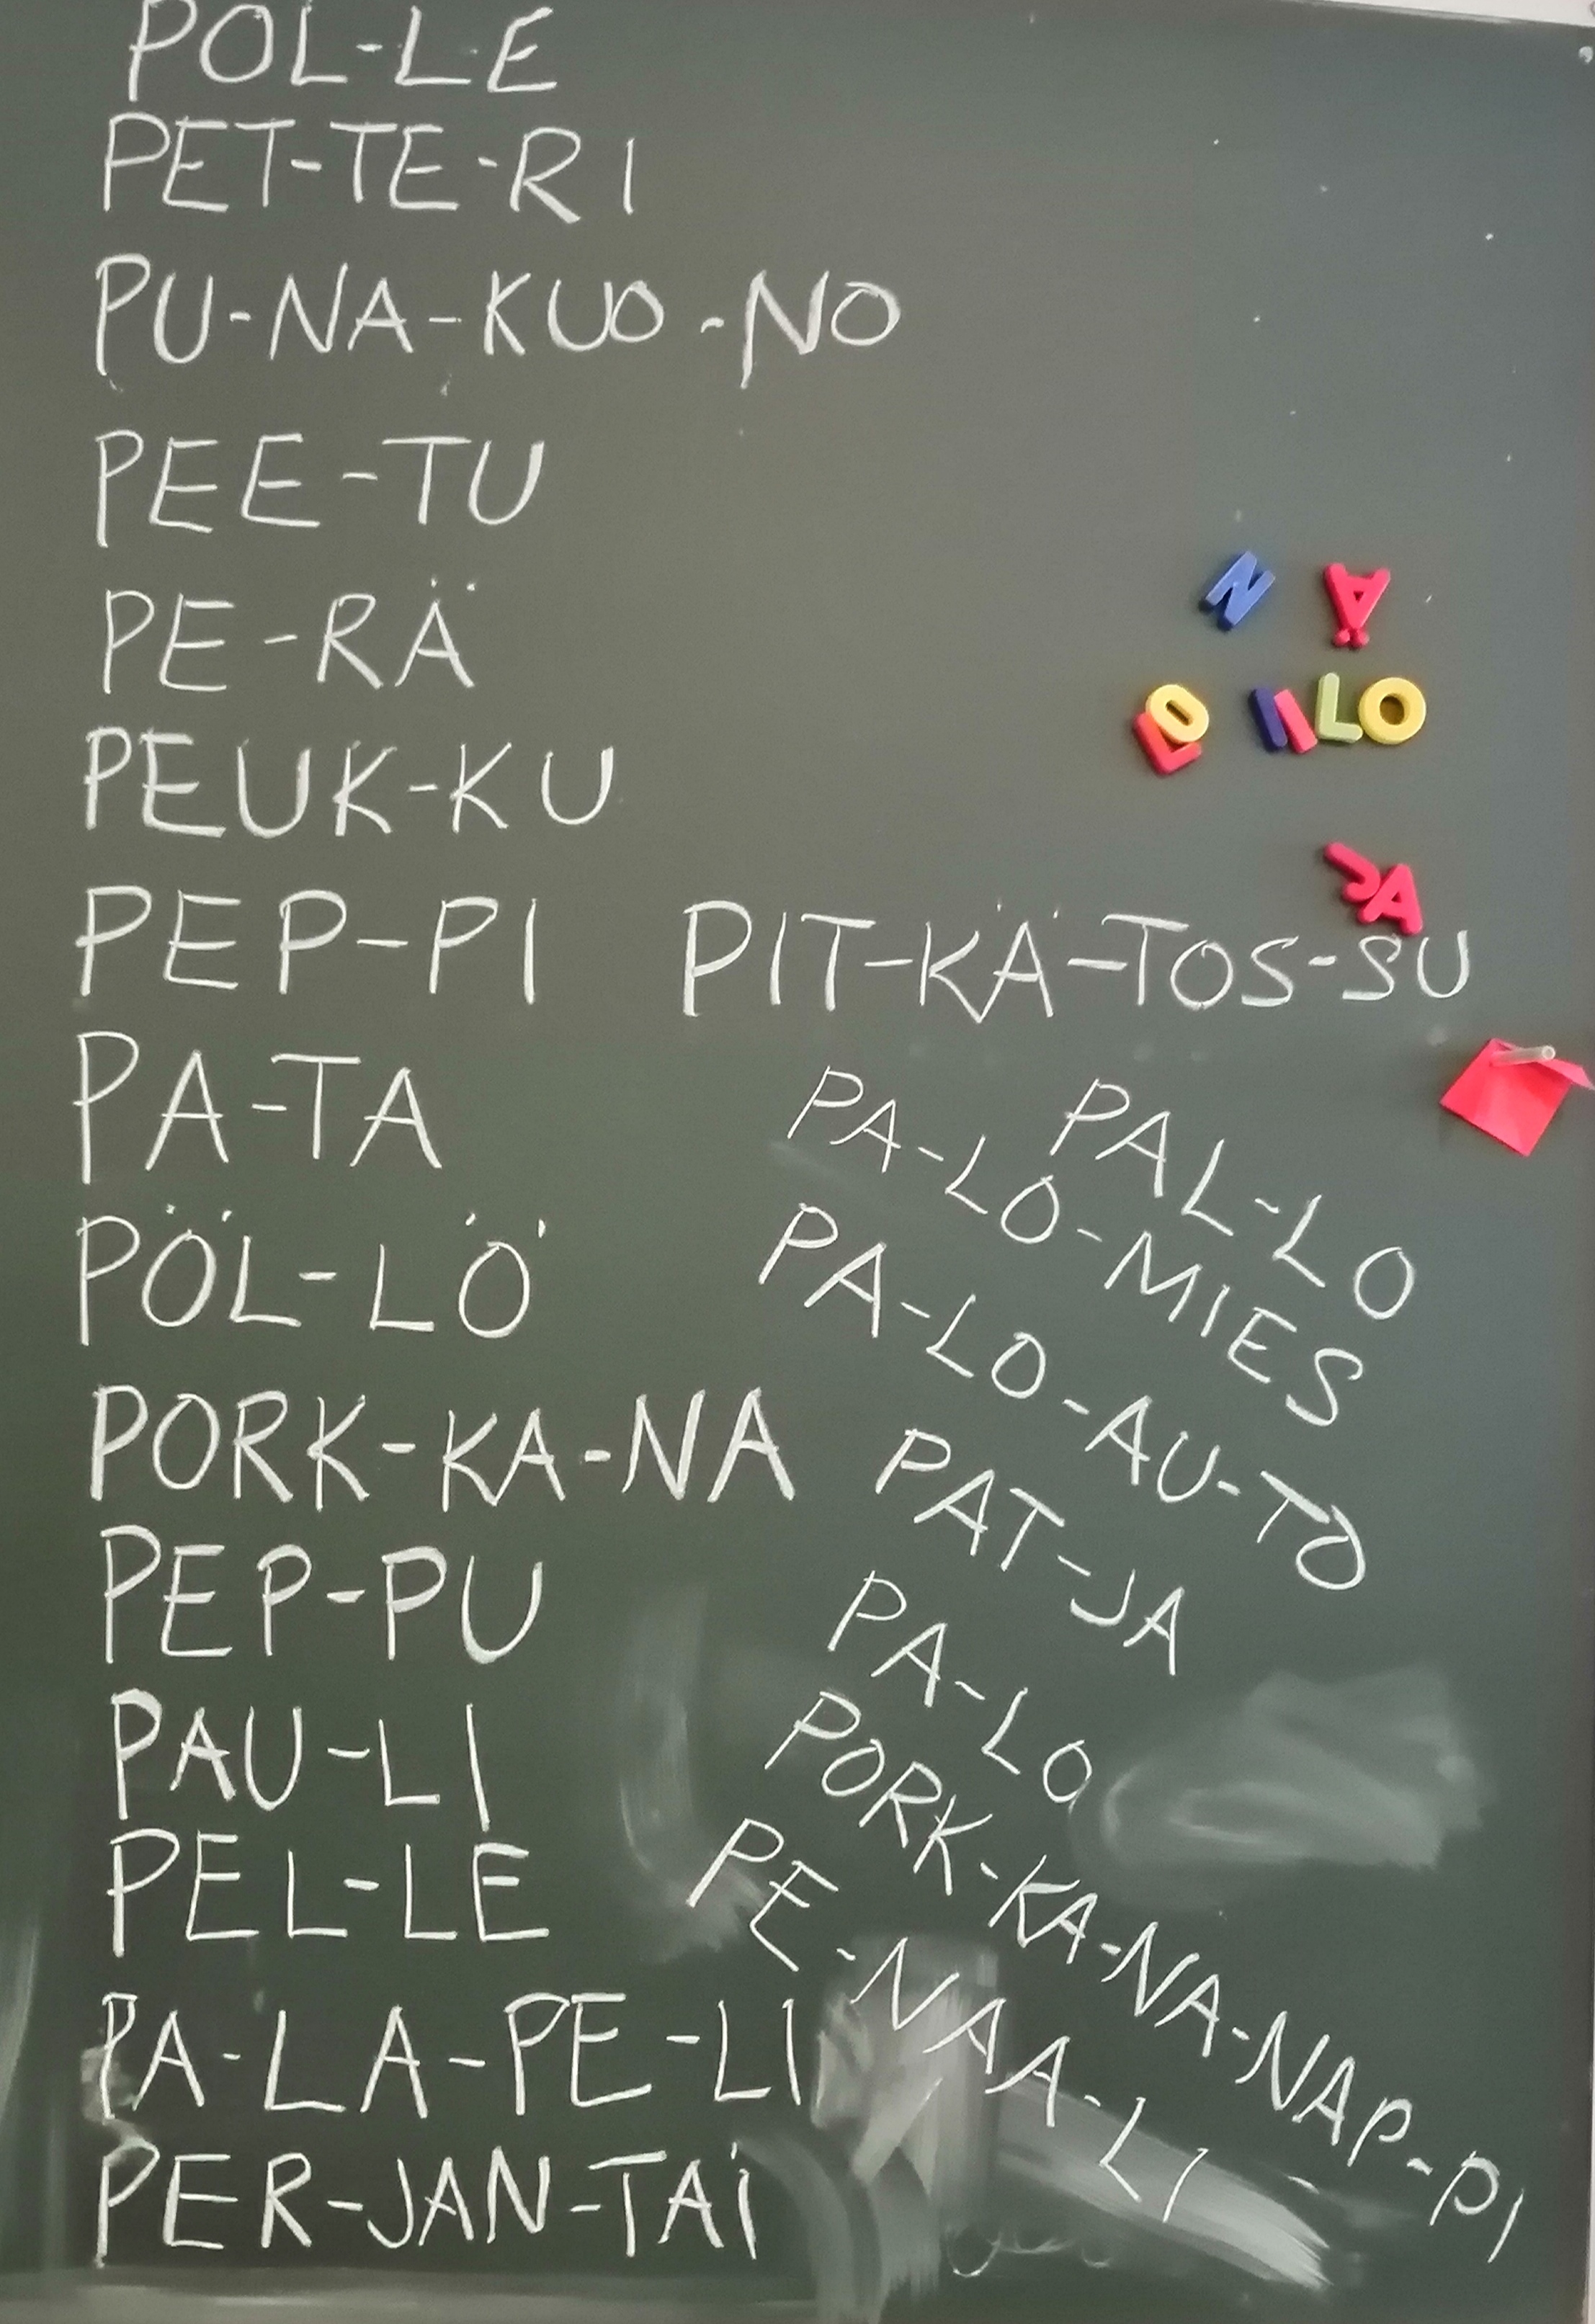 POL-LE
PET-TE-RI
PU-NA-KUO-NO
PEE-TU
PE-RÄ
N Ä
LO IILO
PEUK-KU
JA
PEP-PI PIT-KÄ-TOS-SU
PA-TA
PAL-LO
PA-LO-MIES
PÖL-LÖ
PA-LO-AU-TO
PORK-KA-NA
PAT-JA
PEP-PU
PA-LO
PAU-LI
PORK-KA-NA-NAP-PI
PEL-LE
PE-NAA-LI
PA-LA-PE-LI
PER-JAN-TAI